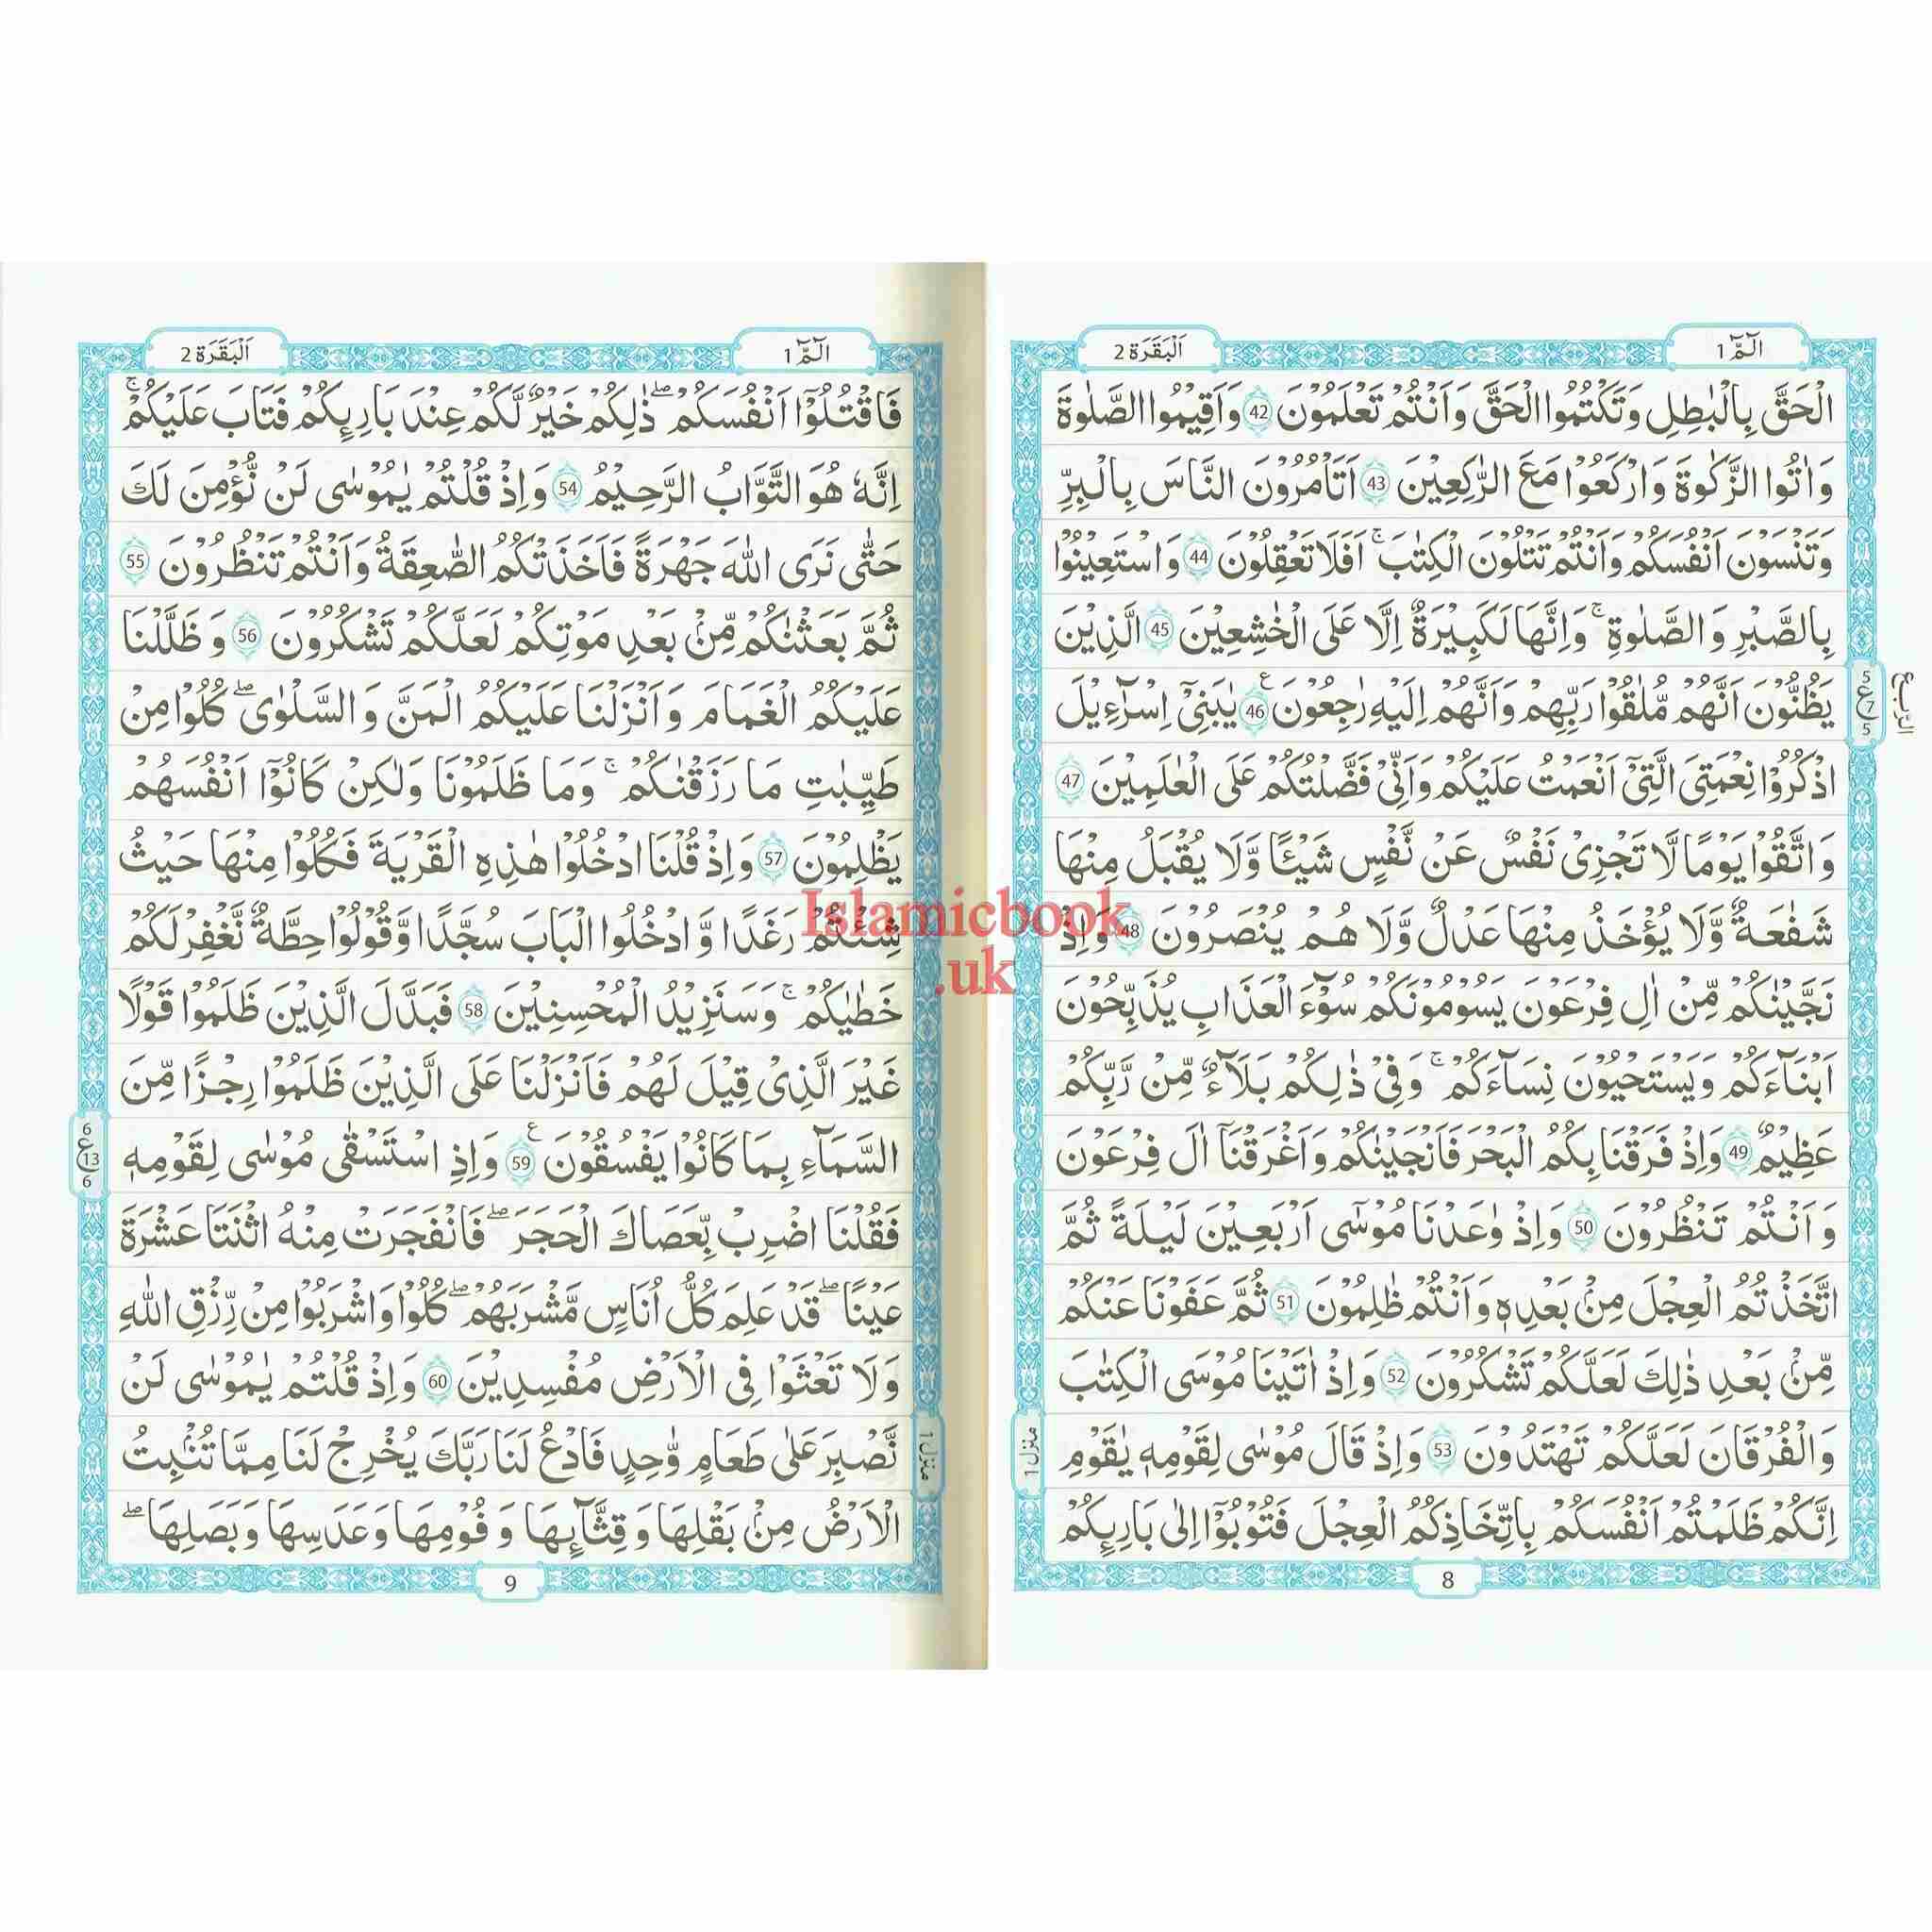 الٓمّٓ 1
اَلْبَقَرَة 2
الْحَقَّ بِالْبٰطِلِ وَتَكْتُمُوا الْحَقَّ وَاَنْتُمْ تَعْلَمُوْنَ 42 وَاَقِيْمُوا الصَّلٰوةَ
وَاٰتُوا الزَّكٰوةَ وَارْكَعُوْا مَعَ الرّٰكِعِيْنَ 43 اَتَاْمُرُوْنَ النَّاسَ بِالْبِرِّ
وَتَنْسَوْنَ اَنْفُسَكُمْ وَاَنْتُمْ تَتْلُوْنَ الْكِتٰبَ ۚ اَفَلَا تَعْقِلُوْنَ 44 وَاسْتَعِيْنُوْا
بِالصَّبْرِ وَالصَّلٰوةِ ۚ وَاِنَّهَا لَكَبِيْرَةٌ اِلَّا عَلَى الْخٰشِعِيْنَ 45 الَّذِيْنَ
يَظُنُّوْنَ اَنَّهُمْ مُّلٰقُوْا رَبِّهِمْ وَاَنَّهُمْ اِلَيْهِ رٰجِعُوْنَ 46 ع يٰبَنِيْٓ اِسْرَآءِيْلَ
اذْكُرُوْا نِعْمَتِيَ الَّتِيْٓ اَنْعَمْتُ عَلَيْكُمْ وَاَنِّيْ فَضَّلْتُكُمْ عَلَى الْعٰلَمِيْنَ 47
وَاتَّقُوْا يَوْمًا لَّا تَجْزِيْ نَفْسٌ عَنْ نَّفْسٍ شَيْئًا وَّلَا يُقْبَلُ مِنْهَا
شَفٰعَةٌ وَّلَا يُؤْخَذُ مِنْهَا عَدْلٌ وَّلَا هُمْ يُنْصَرُوْنَ 48 وَاِذْ
نَجَّيْنٰكُمْ مِّنْ اٰلِ فِرْعَوْنَ يَسُوْمُوْنَكُمْ سُوْٓءَ الْعَذَابِ يُذَبِّحُوْنَ
اَبْنَآءَكُمْ وَيَسْتَحْيُوْنَ نِسَآءَكُمْ ۚ وَفِيْ ذٰلِكُمْ بَلَآءٌ مِّنْ رَّبِّكُمْ
عَظِيْمٌ 49 وَاِذْ فَرَقْنَا بِكُمُ الْبَحْرَ فَاَنْجَيْنٰكُمْ وَاَغْرَقْنَآ اٰلَ فِرْعَوْنَ
وَاَنْتُمْ تَنْظُرُوْنَ 50 وَاِذْ وٰعَدْنَا مُوْسٰٓى اَرْبَعِيْنَ لَيْلَةً ثُمَّ
اتَّخَذْتُمُ الْعِجْلَ مِنْۢ بَعْدِهٖ وَاَنْتُمْ ظٰلِمُوْنَ 51 ثُمَّ عَفَوْنَا عَنْكُمْ
مِّنْۢ بَعْدِ ذٰلِكَ لَعَلَّكُمْ تَشْكُرُوْنَ 52 وَاِذْ اٰتَيْنَا مُوْسَى الْكِتٰبَ
وَالْفُرْقَانَ لَعَلَّكُمْ تَهْتَدُوْنَ 53 وَاِذْ قَالَ مُوْسٰى لِقَوْمِهٖ يٰقَوْمِ
اِنَّكُمْ ظَلَمْتُمْ اَنْفُسَكُمْ بِاتِّخَاذِكُمُ الْعِجْلَ فَتُوْبُوْٓا اِلٰى بَارِئِكُمْ
الربع
5
ع 7
5
منزل 1
8
الٓمّٓ 1
اَلْبَقَرَة 2
فَاقْتُلُوْٓا اَنْفُسَكُمْ ۖ ذٰلِكُمْ خَيْرٌ لَّكُمْ عِنْدَ بَارِئِكُمْ فَتَابَ عَلَيْكُمْ ۚ
اِنَّهٗ هُوَ التَّوَّابُ الرَّحِيْمُ 54 وَاِذْ قُلْتُمْ يٰمُوْسٰى لَنْ نُّؤْمِنَ لَكَ
حَتّٰى نَرَى اللّٰهَ جَهْرَةً فَاَخَذَتْكُمُ الصّٰعِقَةُ وَاَنْتُمْ تَنْظُرُوْنَ 55
ثُمَّ بَعَثْنٰكُمْ مِّنْۢ بَعْدِ مَوْتِكُمْ لَعَلَّكُمْ تَشْكُرُوْنَ 56 وَظَلَّلْنَا
عَلَيْكُمُ الْغَمَامَ وَاَنْزَلْنَا عَلَيْكُمُ الْمَنَّ وَالسَّلْوٰى ۖ كُلُوْا مِنْ
طَيِّبٰتِ مَا رَزَقْنٰكُمْ ۚ وَمَا ظَلَمُوْنَا وَلٰكِنْ كَانُوْٓا اَنْفُسَهُمْ
يَظْلِمُوْنَ 57 وَاِذْ قُلْنَا ادْخُلُوْا هٰذِهِ الْقَرْيَةَ فَكُلُوْا مِنْهَا حَيْثُ
شِئْتُمْ رَغَدًا وَّادْخُلُوا الْبَابَ سُجَّدًا وَّقُوْلُوْا حِطَّةٌ نَّغْفِرْ لَكُمْ
خَطٰيٰكُمْ ۚ وَسَنَزِيْدُ الْمُحْسِنِيْنَ 58 فَبَدَّلَ الَّذِيْنَ ظَلَمُوْا قَوْلًا
غَيْرَ الَّذِيْ قِيْلَ لَهُمْ فَاَنْزَلْنَا عَلَى الَّذِيْنَ ظَلَمُوْا رِجْزًا مِّنَ
السَّمَآءِ بِمَا كَانُوْا يَفْسُقُوْنَ 59 ع وَاِذِ اسْتَسْقٰى مُوْسٰى لِقَوْمِهٖ
فَقُلْنَا اضْرِبْ بِّعَصَاكَ الْحَجَرَ ۖ فَانْفَجَرَتْ مِنْهُ اثْنَتَا عَشْرَةَ
عَيْنًا ۖ قَدْ عَلِمَ كُلُّ اُنَاسٍ مَّشْرَبَهُمْ ۖ كُلُوْا وَاشْرَبُوْا مِنْ رِّزْقِ اللّٰهِ
وَلَا تَعْثَوْا فِى الْاَرْضِ مُفْسِدِيْنَ 60 وَاِذْ قُلْتُمْ يٰمُوْسٰى لَنْ
نَّصْبِرَ عَلٰى طَعَامٍ وَّاحِدٍ فَادْعُ لَنَا رَبَّكَ يُخْرِجْ لَنَا مِمَّا تُنْۢبِتُ
الْاَرْضُ مِنْۢ بَقْلِهَا وَقِثَّآئِهَا وَفُوْمِهَا وَعَدَسِهَا وَبَصَلِهَا ۖ
6
ع 13
6
منزل 1
9
Islamicbook
.uk